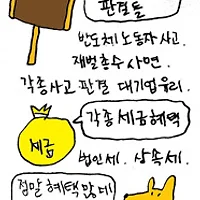 판결들
반도체 노동자 사고.
재벌총수 사면.
각종사고 판결 대기업 유리.
각종 세금혜택
세금
법인세. 상속세.
정말 혜택 많네